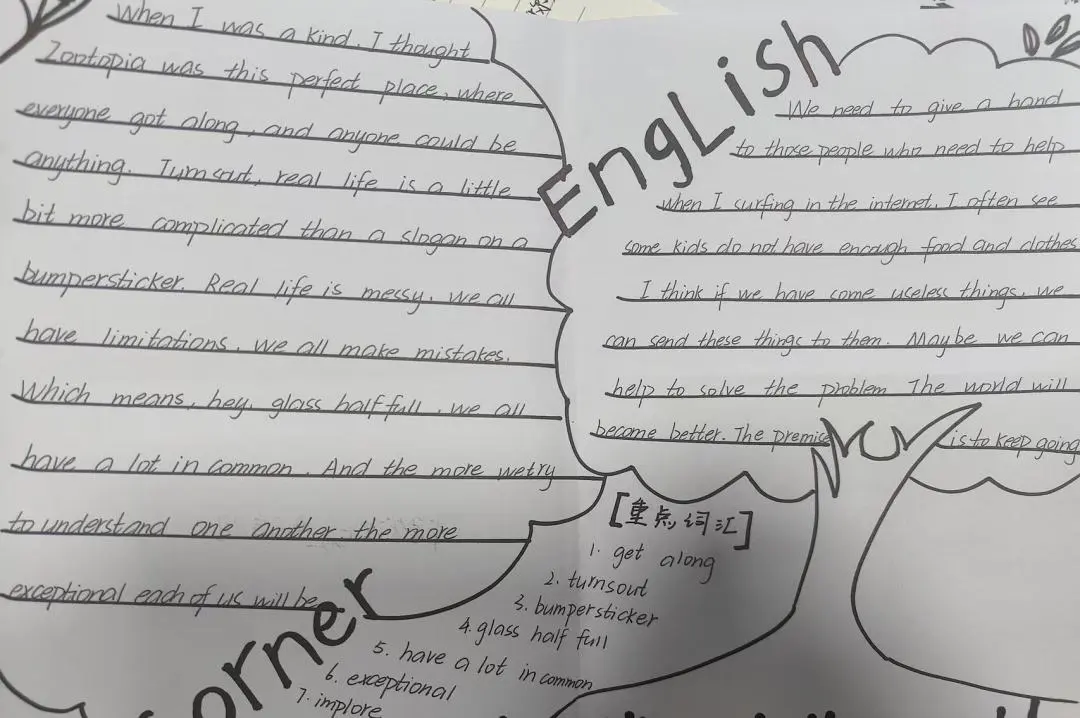 When I was a kind. I thought
Zootopia was this perfect place, where
everyone got along, and anyone could be
anything. Turnsout, real life is a little
bit more complicated than a slogan on a
bumpersticker. Real life is messy. we all
have limitations. we all make mistakes.
Which means, hey, glass half full, we all
have a lot in common. And the more wetry
to understand one another the more
exceptional each of us will be
EngLish
We need to give a hand
to those people who need to help
when I surfing in the internet. I often see
some kids do not have encough food and clothes
I think if we have some useless things, we
can send these things to them. Maybe we can
help to solve the problem The world will
become better. The premise is to keep going
[重点词汇]
1. get along
2. turnsout
3. bumpersticker
4. glass half full
5. have a lot in common
6. exceptional
7. implore
orner